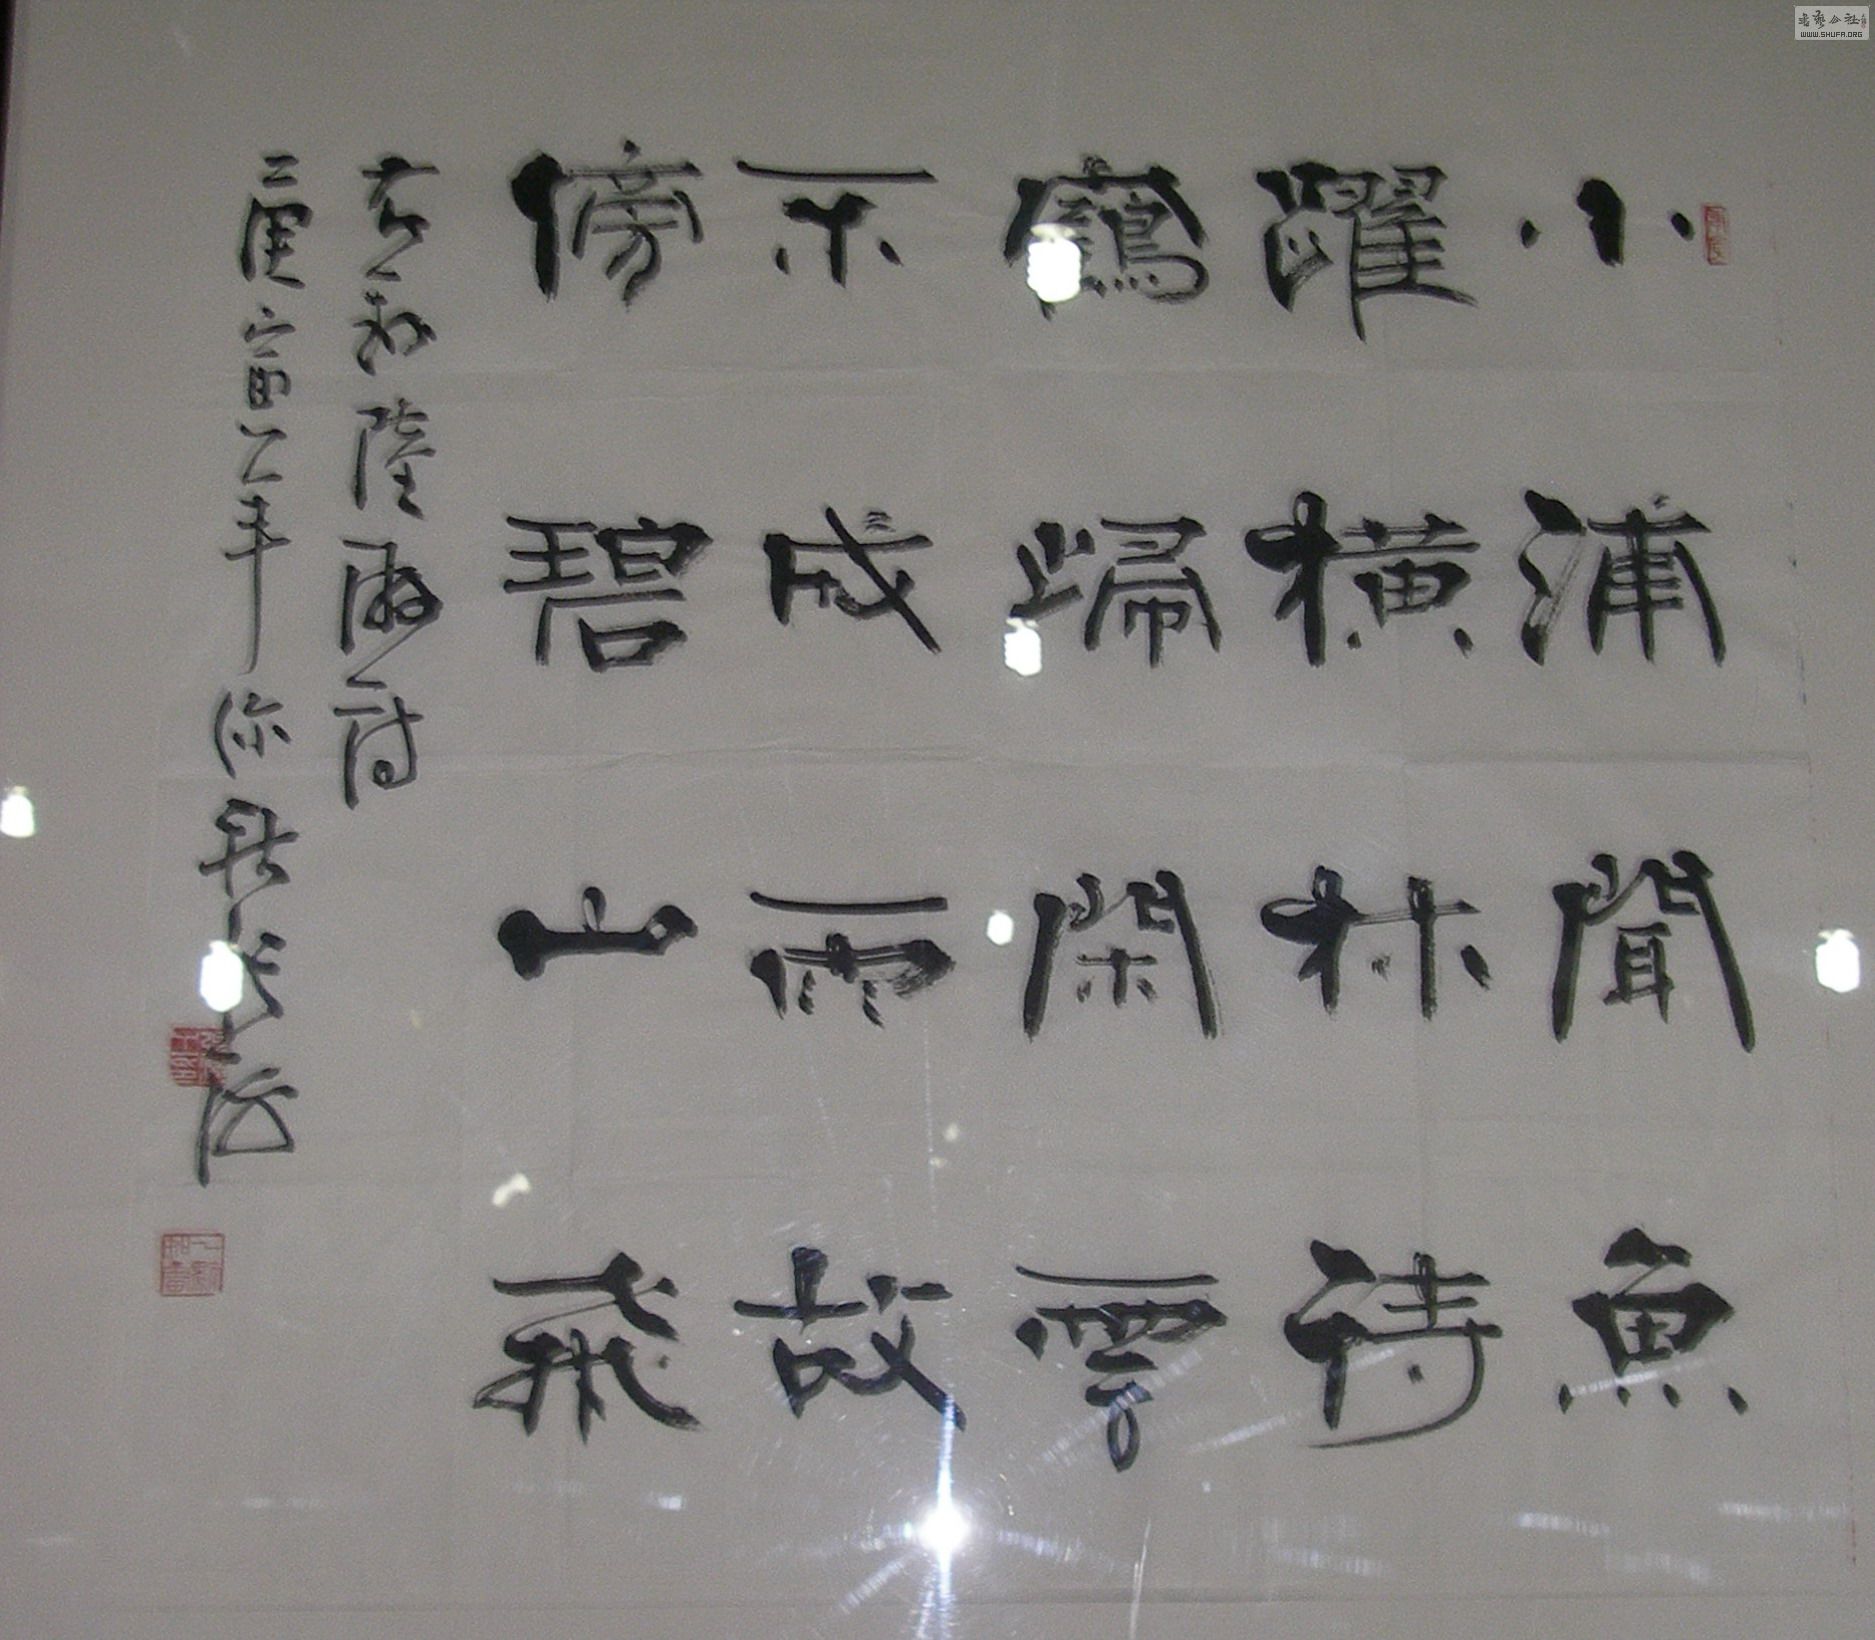 小浦聞魚
躍橫林待
鶴歸閑雲
不成雨故
傍碧山飛
右和陸游詩
庚寅年
書藝公社
WWW.SHUFA.ORG